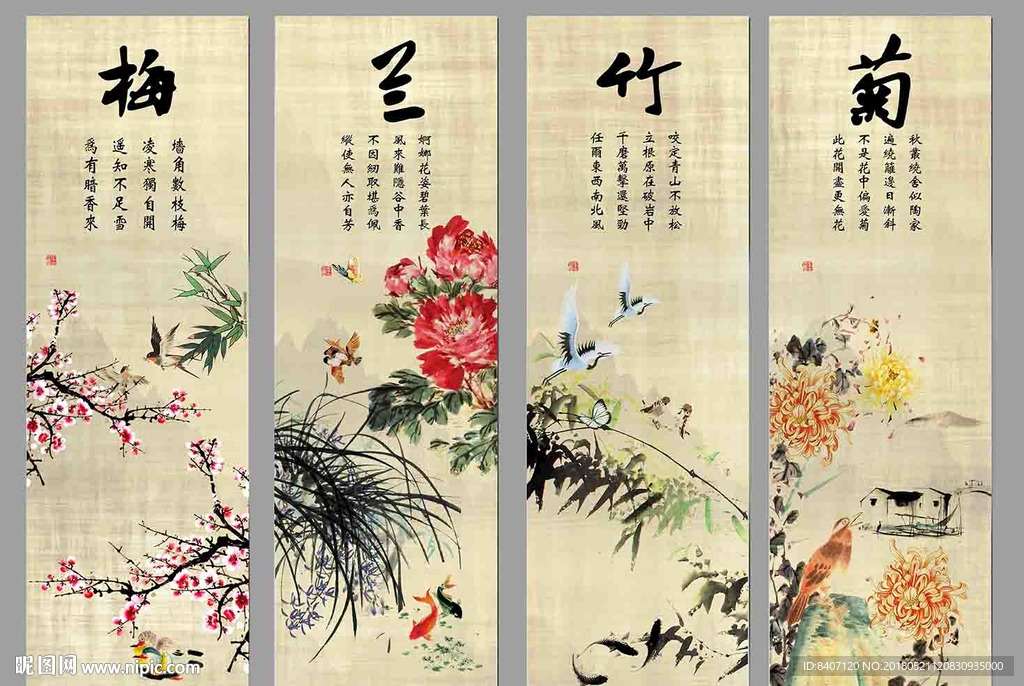 梅
墻角數枝梅
凌寒獨自開
遥知不足雪
爲有暗香來
兰
婀娜花姿碧葉長
風來難隱谷中香
不因紉取堪爲佩
縱使無人亦自芳
竹
咬定青山不放松
立根原在破岩中
千磨萬擊還堅勁
任爾東西南北風
菊
秋叢繞舍似陶家
遍繞籬邊日漸斜
不是花中偏愛菊
此花開盡更無花
昵图网 www.nipic.com
ID:8407120 NO:20180821120830935000